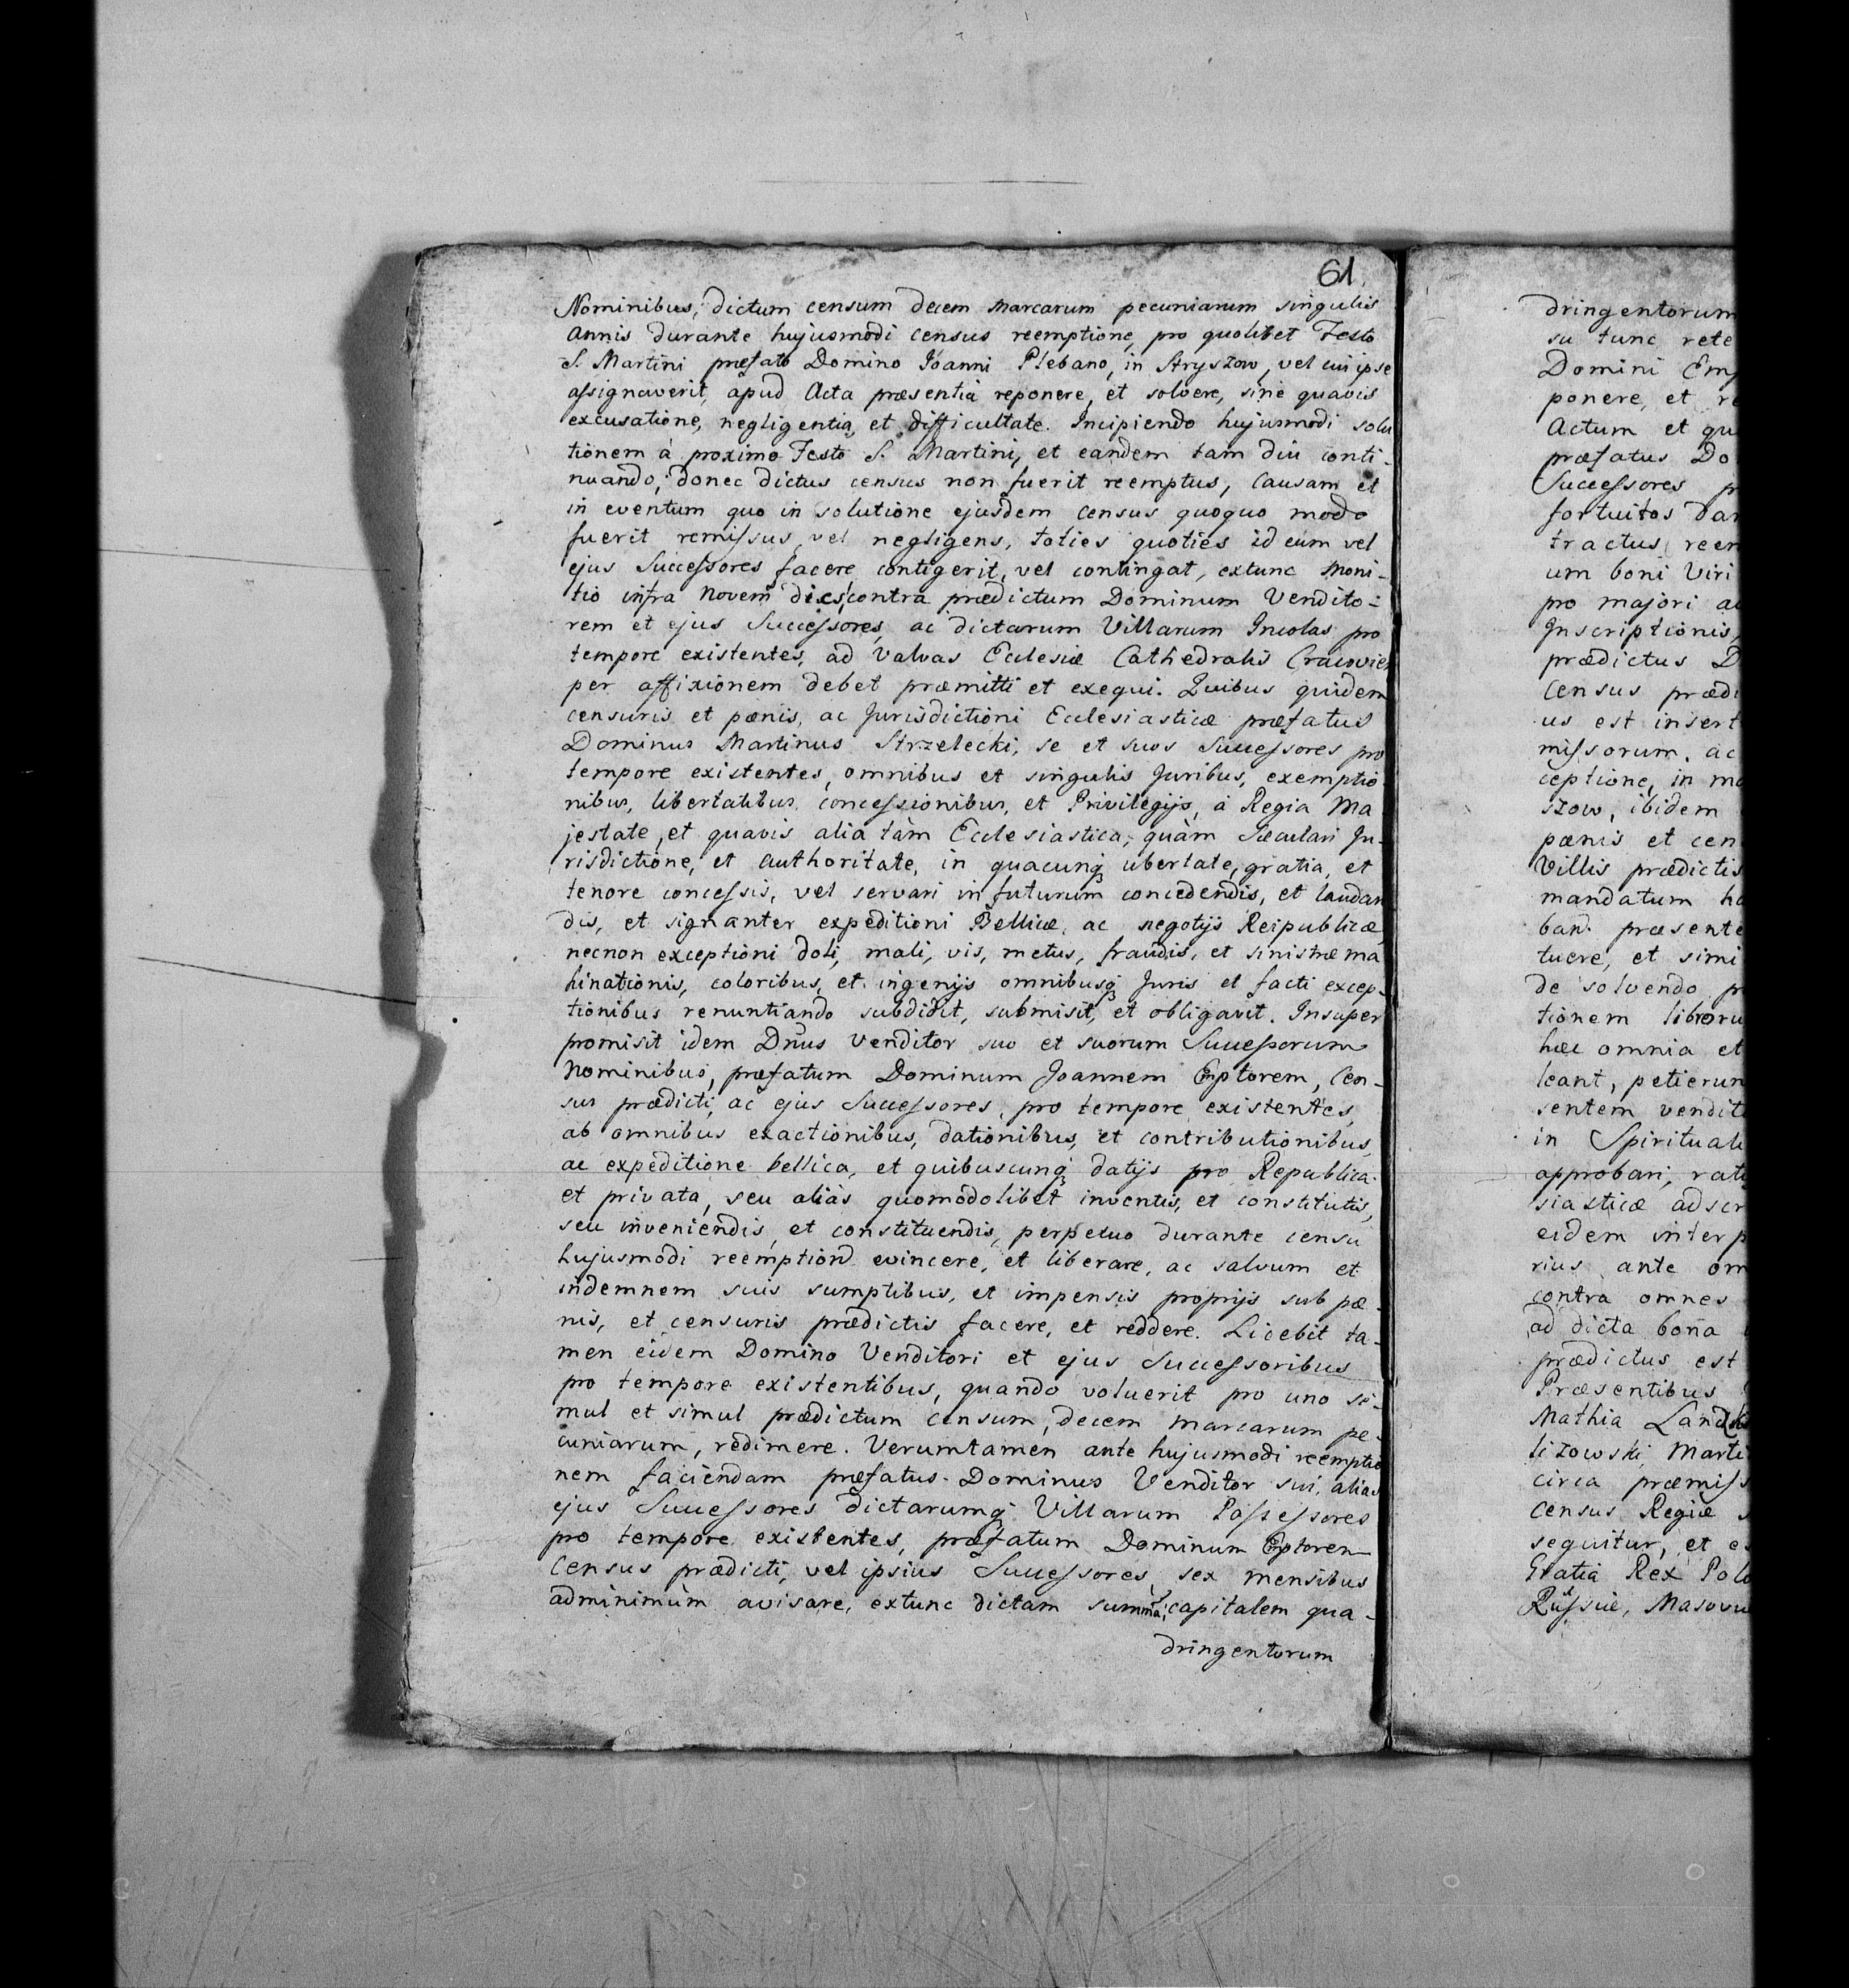 61
Nominibus, dictum censum decem marcarum pecuniarum singulis
annis durante hujusmodi census reemptione, pro quolibet Festo
S. Martini præfato Domino Joanni Plebano, in Stryszow, vel cui ipse
assignaverit, apud Acta præsentia reponere, et solvere, sine quavis
excusatione, negligentia, et difficultate. Incipiendo hujusmodi solu
tionem à proximo Festo S. Martini, et eandem tam diu conti-
nuando, donec dictus census non fuerit reemptus, causam et
in eventum quo in solutione ejusdem census quoquo modo
fuerit remissus, vel negligens, toties quoties id eum vel
ejus Successores facere contigerit, vel contingat, extunc Moni-
tio infra Novem dies, contra prædictum Dominum Vendito-
rem et ejus Successores, ac dictarum Villarum Incolas pro
tempore existentes, ad Valvas Ecclesiæ Cathedralis Cracovien
per affixionem debet præmitti et exequi. Quibus quidem
censuris et pænis, ac Jurisdictioni Ecclesiasticæ præfatus
Dominus Martinus Strzelecki, se et suos Successores pro
tempore existentes, omnibus et singulis Juribus, exemptio
nibus, libertatibus, concessionibus, et Privilegijs, à Regia Ma
jestate, et quavis alia tàm Ecclesiastica, quàm Sæculari Ju-
risdictione, et authoritate, in quacunq3 ubertate, gratia, et
tenore concessis, vel servari in futurum concedendis, et laudan
dis, et signanter expeditioni Bellicæ, ac negotijs Reipublicæ,
necnon exceptioni doli, mali, vis, metus, fraudis, et sinistræ ma
hinationis, coloribus, et ingenijs omnibusq3 Juris et facti excep-
tionibus renuntiando subdidit, submisit, et obligavit. Insuper
promisit idem Dn̄us Venditor suo et suorum Successorum
Nominibus, præfatum Dominum Joannem Emptorem, Cen-
sus prædicti, ac ejus Successores, pro tempore existentes,
ab omnibus exactionibus, dationibus, et contributionibus,
ac expeditione bellica, et quibuscunq3 datijs pro Republica
et privata, seu aliàs quomodolibet inventis, et constitutis,
seu inveniendis, et constituendis, perpetuo durante censu
hujusmodi reemptione evincere, et liberare, ac salvum et
indemnem suis sumptibus, et impensis proprijs sub pæ-
nis, et censuris prædictis facere, et reddere. Licebit ta-
men eidem Domino Venditori et ejus Successoribus
pro tempore existentibus, quando voluerit pro uno si-
mul et simul prædictum censum, decem marcarum pe-
cuniarum, redimere. Verumtamen ante hujusmodi reemptio
nem faciendam præfatus Dominus Venditor sui, alias
ejus Successores dictarumq3 Villarum Possessores
pro tempore existentes, præfatum Dominum Emptorem
Census prædicti, vel ipsius Successores, sex mensibus
adminimùm avisare, extunc dictam summa, capitalem qua-
dringentorum
dringentorum
su tunc rete
Domini Emp
ponere, et re
Actum et qu
præfatus Do
Successores p
fortuitos Dan
tractus, reem
um boni Viri
pro majori a
Inscriptionis,
prædictus D
census prædi
us est insert
missorum, ac
ceptione, in mo
szow, ibidem
pænis et cen
Villis prædictis
mandatum ha
ban. præsente
tuere, et simi
de solvendo p
tionem libroru
hæc omnia et
leant, petierun
sentem vendit
in Spirituali
approbari, rati
siasticæ adscr
eidem interp
rius ante om
contra omnes
ad dicta bona
prædictus est
Præsentibus
Mathia Landzki
lizowski, Marti
circa præmiss
Census Regiæ
sequitur, et e
Gratia Rex Polo
Russiæ, Masovi